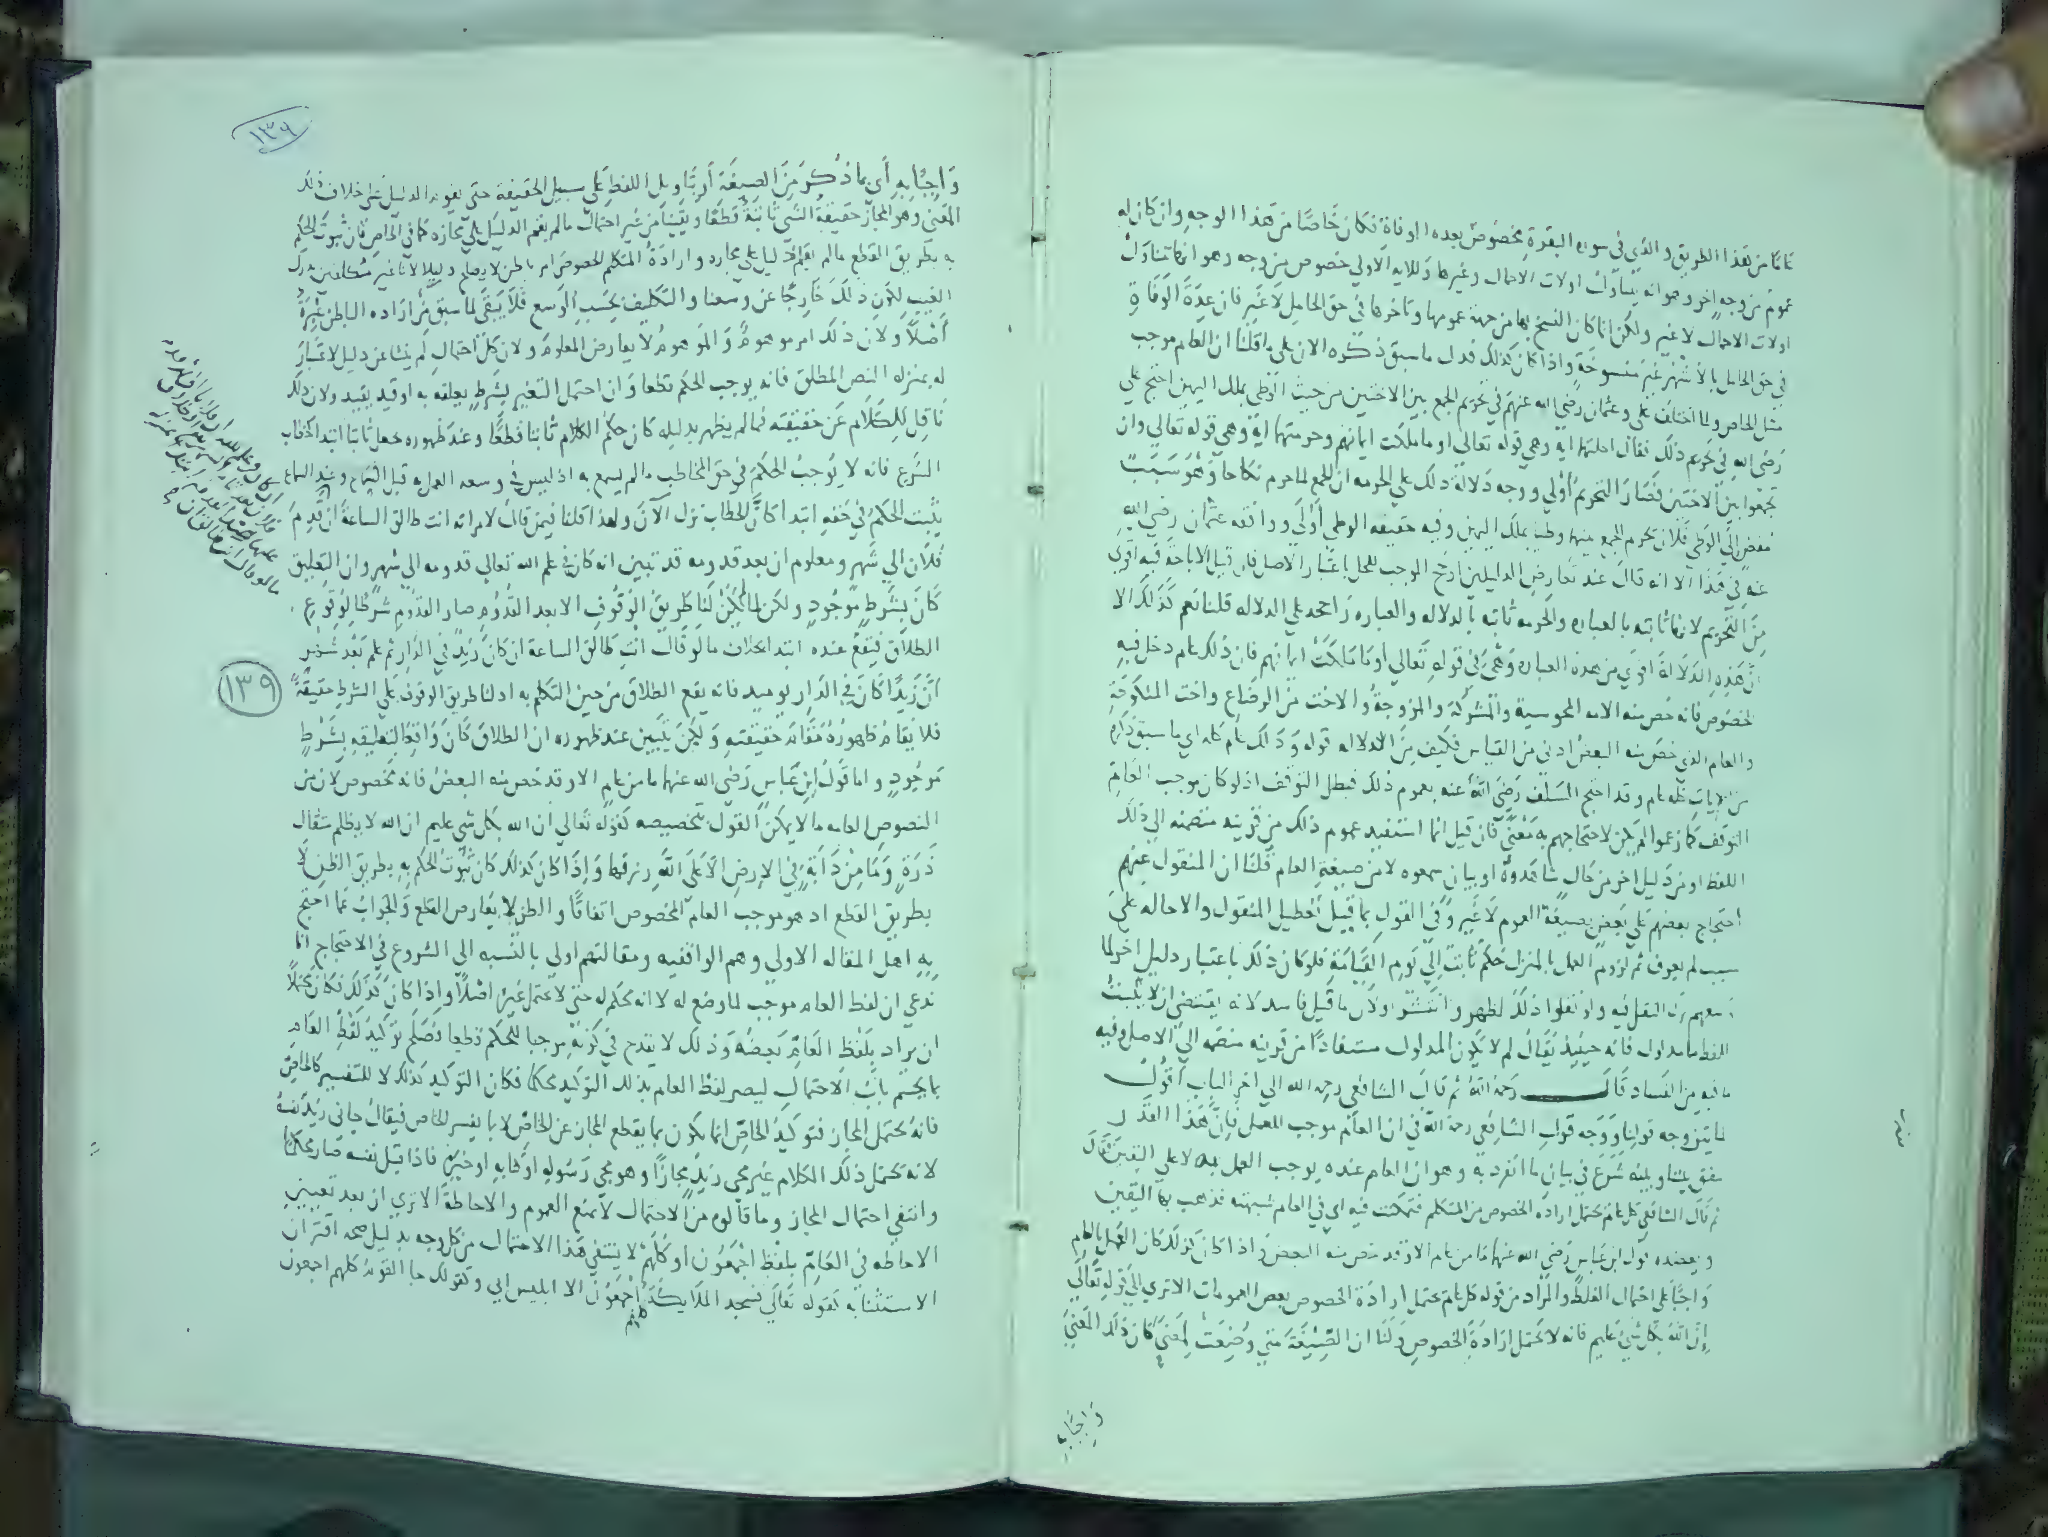 عاما من هذا الطريق والذي في سورة البقرة مخصوص بعده الوفاة فكان خاصا من هذا الوجه وان كان له
عموم من وجه اخر وهو انه يتناول اولات الاحمال وغيرها وللايه الاولي خصوص من وجه وهو انها تتناول
اولات الاحمال لا غير ولكن انما كان النسخ بها من جهة عمومها وتاخرها في حق الحامل لا غير فان عدة الوفاة
في حق الحامل بالاشهر غير منسوخة واذا كان كذلك فدل ما سبق ذكره الان على ما قلنا ان العام موجب
مثل الخاص ولما اختلف علي وعثمان رضي الله عنهم في تحريم الجمع بين الاختين من حيث الوطي بملك اليمين احتج علي
رضي الله في تحريم ذلك فقال احلتهما ايه وهي قوله تعالى او ما ملكت ايمانهم وحرمتهما اية وهي قوله تعالي وان
تجمعوا بين الاختين فصار التحريم أولي ووجه دلالة ذلك علي الحرمه ان الجمع لما حرم نكاحا وهو سبب
مفض إلي الوطي فلان يحرم الجمع بينهما وطيا بملك اليمين وفيه حقيقه الوطي أولي ووافقه عثمان رضي الله
عنه في هذا الا انه قال عند تعارض الدليلين ارجح الموجب للحل باعتبار الاصل فان قيل الاباحة فيه اقوى
من التحريم لانها ثابته بالعباره والحرمه ثابته بالدلاله والعباره راجحه علي الدلاله قلنا نعم كذلك الا
ان هذه الدلالة اقوي من هذه العباره وهي في قوله تعالي او ما ملكت ايمانهم فان ذلك عام دخل فيه
الخصوص فانه خص منه الامه المجوسية والمشركة والمزوجة والاخت من الرضاع واخت المنكوحة
والعام الذي خص منه البعض ادني من القياس فكيف من الدلاله قوله وذلك عام كله اي ما سبق ذكره
من الايات كله عام وقد احتج السلف رضي الله عنه بعموم ذلك فبطل التوقف اذ لو كان موجب العام
التوقف كما زعموا لم يكن لاحتجاجهم به معني فان قيل انما استفيد عموم ذلك من قرينه منضمه الي ذلك
اللفظ او من دليل اخر من حال شاهدوه او بيان سمعوه لا من صيغة العام قلنا ان المنقول عنهم
احتجاج بعضهم علي بعض بصيغة العموم لا غير وفي القول بما قيل تعطيل المنقول والاحاله علي
سبب لم يعرف ثم لزوم العمل بالمنزل حكم ثابت الي يوم القيامة فلو كان ذلك باعتبار دليل اخر لما
وسعهم ترك النقل فيه ولو نقلوا ذلك لظهر وانتشر ولان ما قيل فاسد لانه يقتضي ان لا يثبت
للفظ ما مدلول فانه حينيذ يقال لم لا يكون المدلول مستفادا من قرينه منضمه الي الاصل وفيه
ما فيه من الفساد قال رحمه الله ثم قال الشافعي رحمه الله الي اخر الباب أقول
لما بين وجه قولنا ووجه قول الشافعي رحمه الله في ان العام موجب للعمل فان هذا القدر
متفق بيننا وبينه شرع في بيان ما انفرد به وهو ان العام عنده يوجب العمل به لا علي اليقين فقال
ثم قال الشافعي كل عام يحتمل ارادة الخصوص من المتكلم فتمكنت فيه اي في العام شبهته فذهب بها اليقين
ويعضده قول ابن عباس رضي الله عنهما ما من عام الا وقد خص منه البعض واذا كان كذلك كان العمل بالعام
واجبا علي احتمال الغلط والمراد من قوله كل عام يحتمل ارادة الخصوص بعض العمومات الا تري الي قوله تعالي
ان الله بكل شي عليم فانه لا يحتمل ارادة الخصوص ولنا ان الصيغة متي وضعت لمعني كان ذلك المعني
واجبا به
١٣٦
واجبا به أي بما ذكر من الصيغة أو بتاويل اللفظ علي سبيل الحقيقة حتي يقوم الدليل على خلاف ذلك
المعنى وهو المجاز حقيقة الشي ثابتة قطعا ويقينا من غير احتمال ما لم يقم الدليل علي مجازه كما في الخاص فان ثبوت الحكم
به بطريق القطع ما لم يقم دليل علي مجازه وارادة المتكلم الخصوص امر باطن لا يصلح دليلا لانا غير مكلفين بدرك
الغيب لكون ذلك خارجا عن وسعنا والتكليف بحسب الوسع فلا يبقي لما سبق من ارادة الباطن عبرة
أصلا ولان ذلك امر موهوم والموهوم لا يعارض المعلوم ولان كل احتمال لم ينشا عن دليل لا اعتبار
له بمنزلة النص المطلق فانه يوجب الحكم قطعا وان احتمل التغير بشرط يعلقه به او قيد يقيد ولان ذلك
ناقل للكلام عن حقيقته فما لم يظهر بدليله كان حكم الكلام ثابتا قطعا وعند ظهوره جعل ثابتا ابتدا كخطاب
الشرع فانه لا يوجب الحكم في حق المخاطب ما لم يسمع به اذ ليس في وسعه العمل به قبل السماع وعند السماع
يثبت الحكم في حقه ابتدا كان الخطاب نزل الآن ولهذا قلنا فيمن قال لامراته انت طالق الساعة ان قدم
فلان الي شهر ومعلوم ان بعد قدومه قد تبين انه كان في علم الله تعالي قدومه الي شهر وان التعليق
كان بشرط موجود ولكن لما لم يكن لنا طريق الوقوف الا بعد القدوم صار القدوم شرطا لوقوع
الطلاق فيقع عنده ابتدا بخلاف ما لو قال انت طالق الساعة ان كان زيد في الدار ثم علم بعد شهر
ان زيدا كان في الدار يوميد فانه يقع الطلاق من حين التكلم به اذ لنا طريق الوقوف علي الشرط حقيقة
فلا يقام ظهوره مقام حقيقته ولكن يتبين عند ظهوره ان الطلاق كان واقعا لتعليقه بشرط
موجود واما قول ابن عباس رضي الله عنهما ما من عام الا وقد خص منه البعض فانه مخصوص لان من
النصوص العامه ما لا يمكن القول بتخصيصه كقوله تعالي ان الله بكل شي عليم ان الله لا يظلم مثقال
ذرة وما من دابة في الارض الا علي الله رزقها واذا كان كذلك كان ثبوت الحكم به بطريق الظن لا
بطريق القطع اذ هو موجب العام المخصوص اتفاقا والظن لا يعارض القطع والجواب عما احتج
به اهل المقاله الاولي وهم الواقفيه ومقالتهم اولي بالنسبه الي الشروع في الاحتجاج انا
ندعي ان لفظ العام موجب لما وضع له لا انه محكم له حتي لا يحتمل غيره اصلا واذا كان كذلك فكان محتملا
ان يراد بلفظ العام بعضه وذلك لا يقدح في كونه موجبا للحكم قطعا فصلح توكيد لفظ العام
بما يحسم باب الاحتمال ليصير لفظ العام بذلك التوكيد محكما فكان التوكيد كذلك لا للتفسير كالخاص
فانه يحتمل المجاز فتوكيد الخاص انما يكون بما يقطع المجاز عن الخاص لا بما يفسر الخاص فيقال جاني زيد نفسه
لانه يحتمل ذلك الكلام غير مجي زيد مجازا وهو مجي رسوله او كتابه او خبره فاذا قيل نفسه صار محكما
وانتفي احتمال المجاز وما قالوه من الاحتمال لا يمنع العموم والاحاطة الا تري ان بعد تعيين
الاحاطه في العام بلفظ اجمعون او كلهم لا ينتفي هذا الاحتمال من كل وجه بدليل صحه اقتران
الاستثنا به كقوله تعالي فسجد الملايكة كلهم أجمعون الا ابليس ابي وكقولك جا القوم كلهم اجمعون
١٣٩